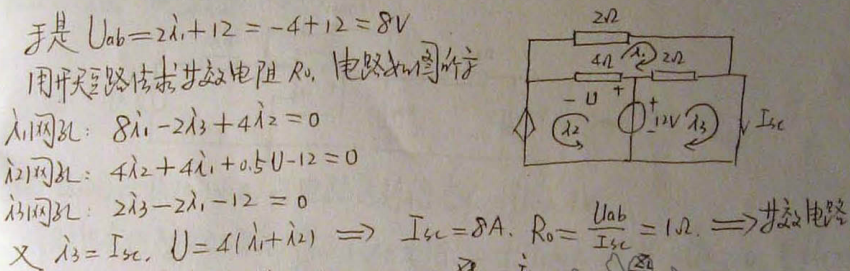 于是 Uab=2i₁+12=-4+12=8V
用开短路法求等效电阻R₀, 电路如图所示
i₁网孔: 8i₁-2i₃+4i₂=0
i₂网孔: 4i₂+4i₁+0.5U-12=0
i₃网孔: 2i₃-2i₁-12=0
又 i₃=Isc, U=4(i₁+i₂) ⇒ Isc=8A. R₀=Uab/Isc=1Ω. ⇒等效电路
2Ω
4Ω i₁ 2Ω
- U +
i₂ + 12V - i₃ Isc